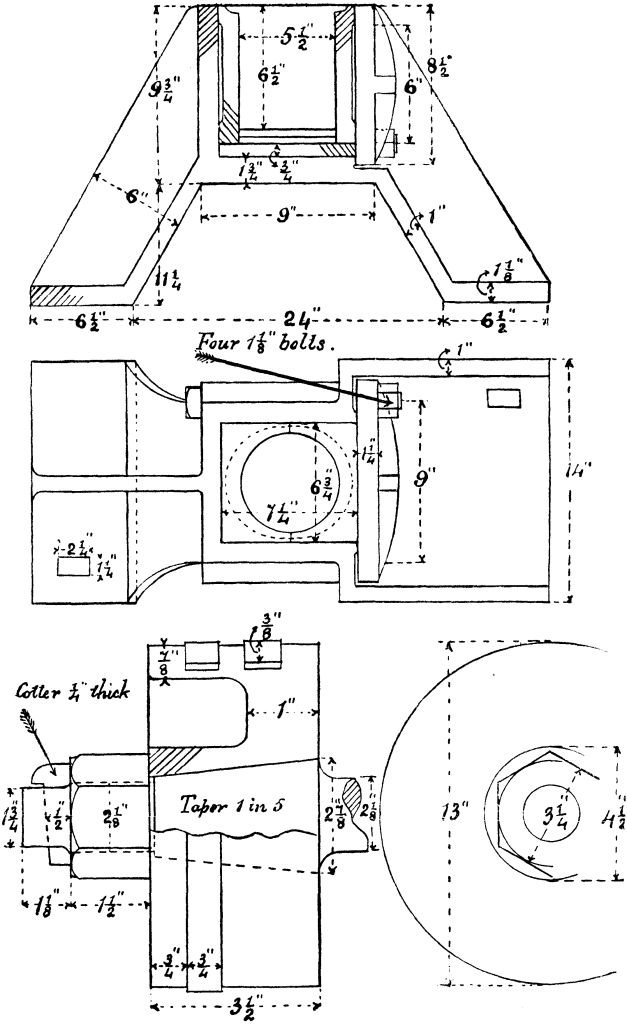 5 1/2"
8 1/2"
9 3/4"
6 1/2"
6"
1 3/4"
3/4"
6"
9"
1"
11 1/4
1 1/8"
6 1/2"
24"
6 1/2"
Four 1 1/8" bolts.
1"
1 1/4"
6 3/4"
9"
14"
7 1/4"
2 1/4"
1 1/4"
3/8"
7/8"
Cotter 1/4" thick
1"
1 3/4"
1/2"
2 1/8"
Taper 1 in 5
2 7/8"
2 1/8"
13"
3 1/4"
4 1/2
1 1/8"
1 1/2"
3/4"
3/4"
3 1/2"